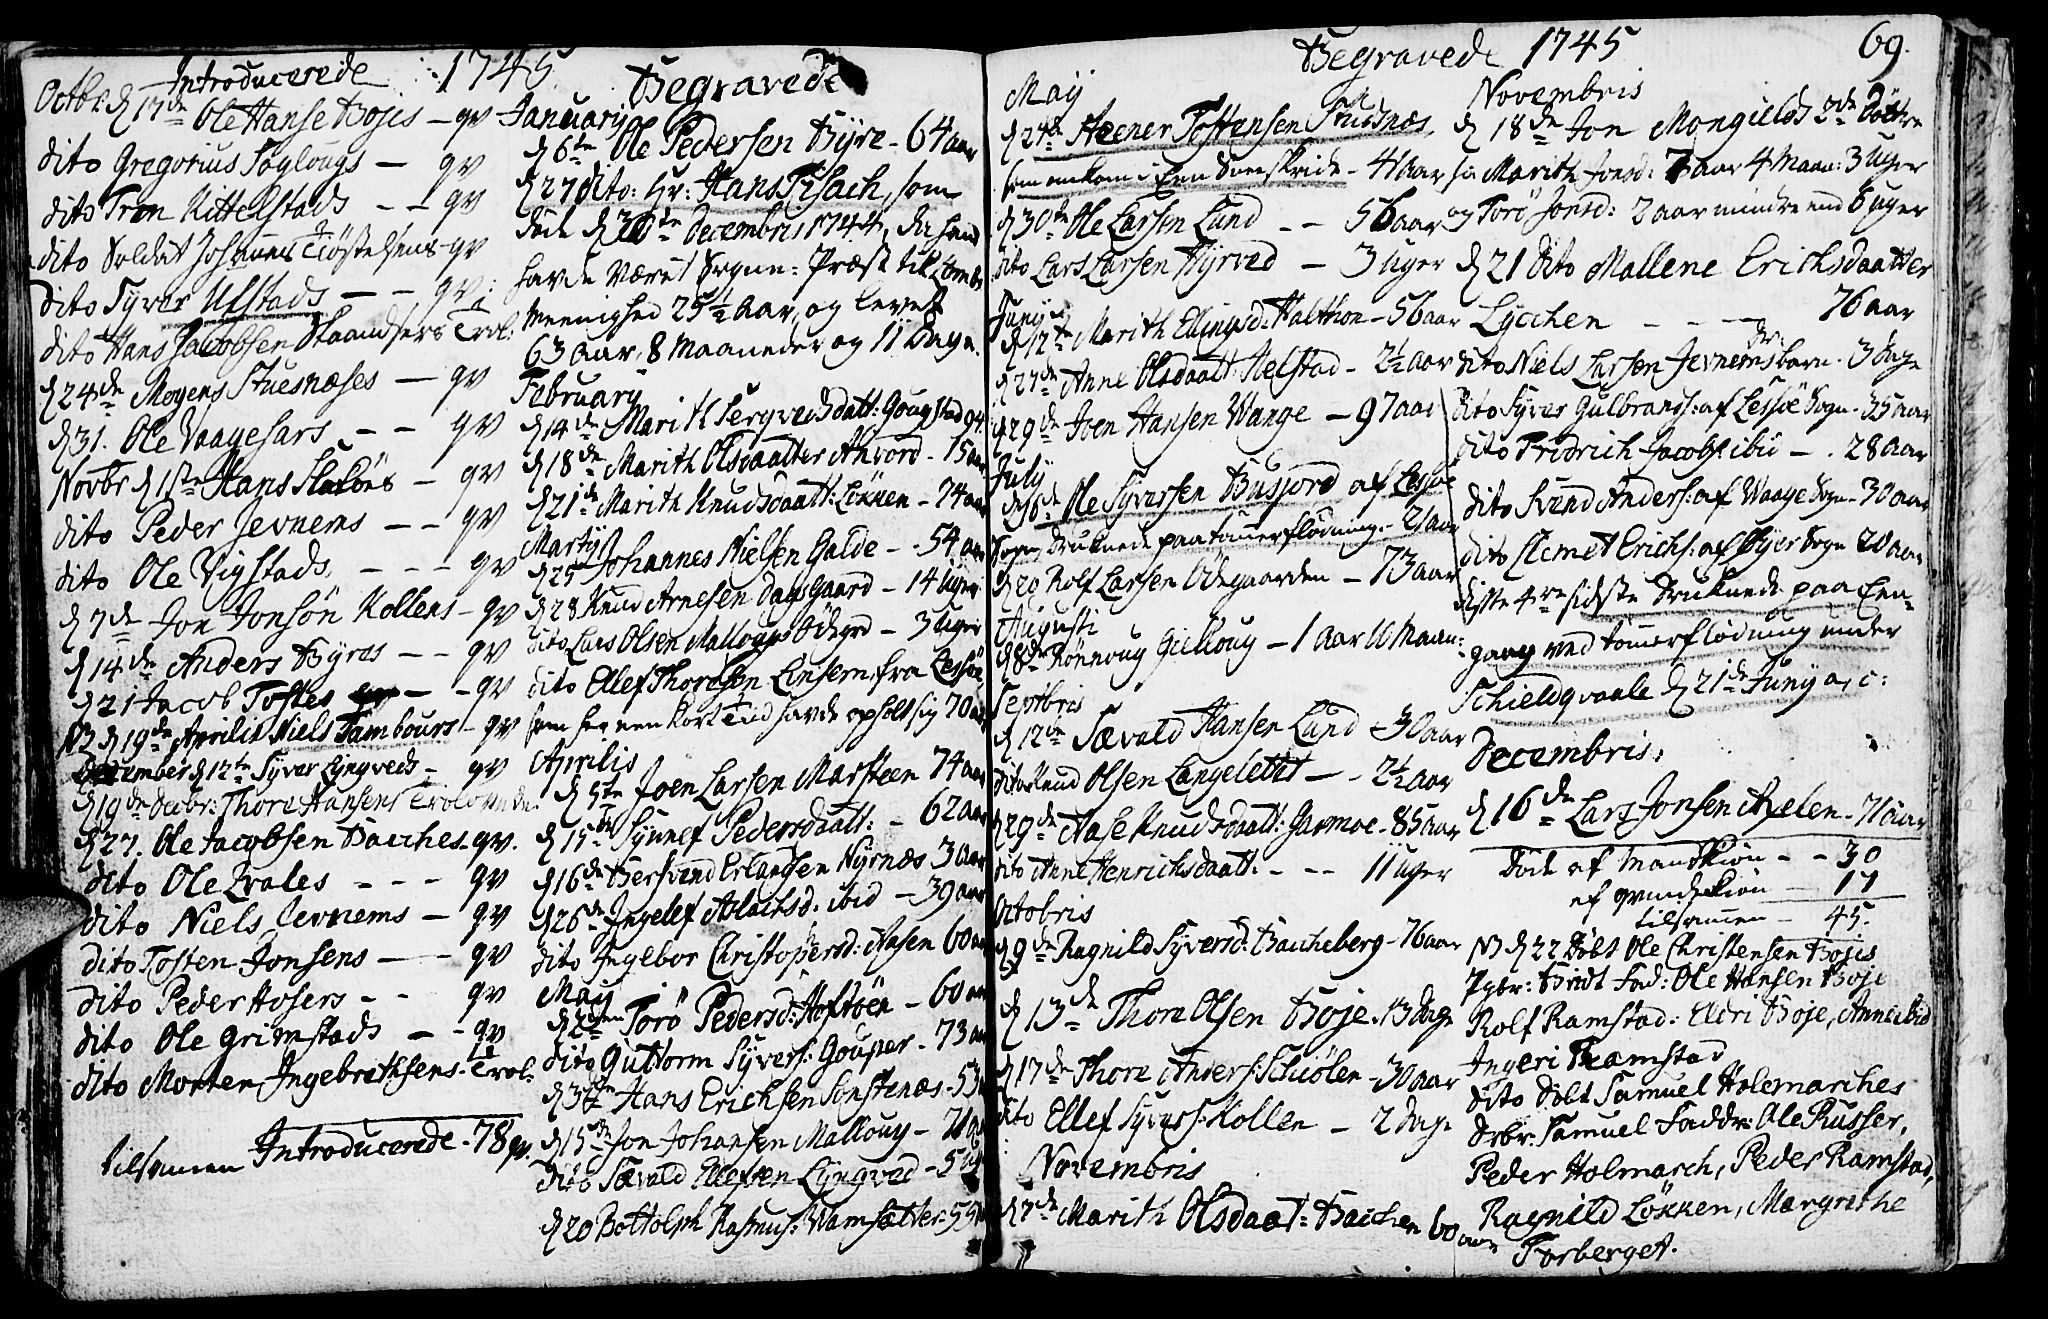 Introducerede 1745
Octbr: d 17de Ole Hanse Bojes – qv
dito Gregorius Soglougs – qv
dito Tron Kittelstads – – qv
dito Soldat Johannes Tiøstelsens qv
dito Syver Ufstads – – – qv:
dito Hans Jacobsen Skaandsers Trol:
d 24de Mogens Stuesnæses – qv
d 31. Ole Vaagesars – – qv
Novbr d 1ste Hans – qv
dito Peder Jevnems – – qv
dito Ole Vigstads, – – – qv
d 7de Jon Jonsøn Kollens – qv
d 14de Anders Byres – – qv
d 21 Jacob Tostes – – qv
NB d 19de Aprilis Niels Tambours – qv
December d 12te Syver Lyngveds – qv
d 19de Decbr: Thore Hansens Trolovede
d 27. Ole Jacobsen Bacches – qv.
dito Ole Qvales – – – qv
dito Niels Jevnems – qv
dito Tosten Jonsens – – qv
dito Peder Hosers – – qv
dito Ole Grimstads – – qv
dito Morten Ingebrethsens – Trol:
tilsamen Introducerede – 78 qv.
Begravede
January
d 6te Ole Pedersen Byre – 64 aar
d 27 dito: Hr: Hans Pisach, som
døde d 30te Decembris 1744, da hand
havde været Sogne: Præst til Lomb
Meenighed 25½ Aar, og levet
63 aar, 8 Maaneder og 11 Dage.
February
d 14de Marith Tergvedsdatt: Gougstad 94
d 18de Marith Olsdaatter Anvord – 15 aar
d 21de Marith Knudsdaatt: Løkken – 74 aar
Martij
d 25 Johannes Nielsen Galde – – 54 aar
d 28 Knud Arnesen Dagsgaard – 14 uger
dito Lars Olsen Mallougs Ødegrd – 3 uger
dito Ellef Thoresøn Einsem, fra Lessøe
som her een kort Tiid havde opholt sig 70 aar
Aprilis
d 5te Joen Larsen Marsteen 74 aar
d 15de Synnef Pedersdaatt: – 62 aar
d 16de Bersvend Erlandsen Nyrnæs 3 aar
d 26de Ingelef Aslachsd. ibid – 39 aar
dito Ingebor Christophersd: Aasen 60 aar
May
d 2den Torø Pedersd: Hoftøen – 60 aar
dito Guttorm Syvers: Gouper – 73 aar
d 3die Hans Erichsen Sonstenæs – 53
d 15de Jon Johansen Mallouy – 71 aar
dito Sævald Ellefsen Lyngved – 5
d 20 Bottolph Rasmus: Wamsætter – 55
Begravede 1745
69.
May
d 24de Steener Tostensen Stuesnæs,
som omkom i Een Sneeskride – 41 aar
d 30te Ole Larsen Lund – – 56 aar
dito Lars Larsen Hyrved – 3 uger
Junij
d 12te Marith Ellingsd: Halthon – 56 aar
d 27de Anne Olsdaatt: Helstad – 2½ aar
d 29de Joen Hansen Wange – 97 aar
July
d 6te Ole Syversen Busjord af Lessøe
Sogn, druknede paa tømmerflødning – 21 aar
d 20 Rolf Larsen Ødegaarden – 73 aar
Augusti
d 8de Rønnoug Gielloug – 1 aar 10 Maan:
Septbris
d 12te Sævald Hansen Lund – 30 aar
dito Knud Olsen Langeletet – – 2½ aar
d 29de Aase Knudsdaatt: Garmoe – 85 aar
dito Anne Henrichsdaatt: – – – 11 uger
Octobris
d 9de Ragnild Syversd: Baccheberg – 76 aar
d 13de Thore Olsen Boje – 13 dage
d 17de Thore Anders: Schiølen – 30 aar
dito Ellef Syvers: Kollen – 2 dage
Novembris
d 7de Marith Olsdaat: Bacchen 60 aar
Novembris
d 18de Jon Mongields 2de Døttre
sc: Marith Jonsd: 7 aar 4 Maan: 3 uger
og Torø Jonsd: 2 aar mindre end 8 uger
d 21 dito Mallene Erichsdaatter
Lycchen – – – – 76 aar
dito Niels Larsen Jevnems barn – 3 dage
dito Syver Gulbrands: af Lessøe Sogn – 35 aar
dito Fridrich Jacobs: ibid – . 28 aar
dito Svend Anders: af Waage Sogn – 30 aar
dito Clemet Erichs: af Øyer Sogn 20 aar
disse 4re sidste druknede paa Een-
gang ved tømmerflødning under
Schieldqvaale d 21de Junij a, c:
Decembris:
d 16de Lars Jonsen Aselen – 71 aar
Døde af Mandkiøn – – 30
af qvindekiøn – 17
tilsamen – 45.
NB d 22 Døbt Ole Christensen Bojes
Pgbr: Bridt Fad: Ole Hansen Boje
Rolf Ramstad: Eldri Boje, Anne ibid
Ingeri Ramstad
dito Døbt Samuel Holemarches
Drbr: Samuel Faddr: Ole Russer,
Peder Holmarch, Peder Ramstad,
Ragnild Løkken, Margrethe
Forberget.